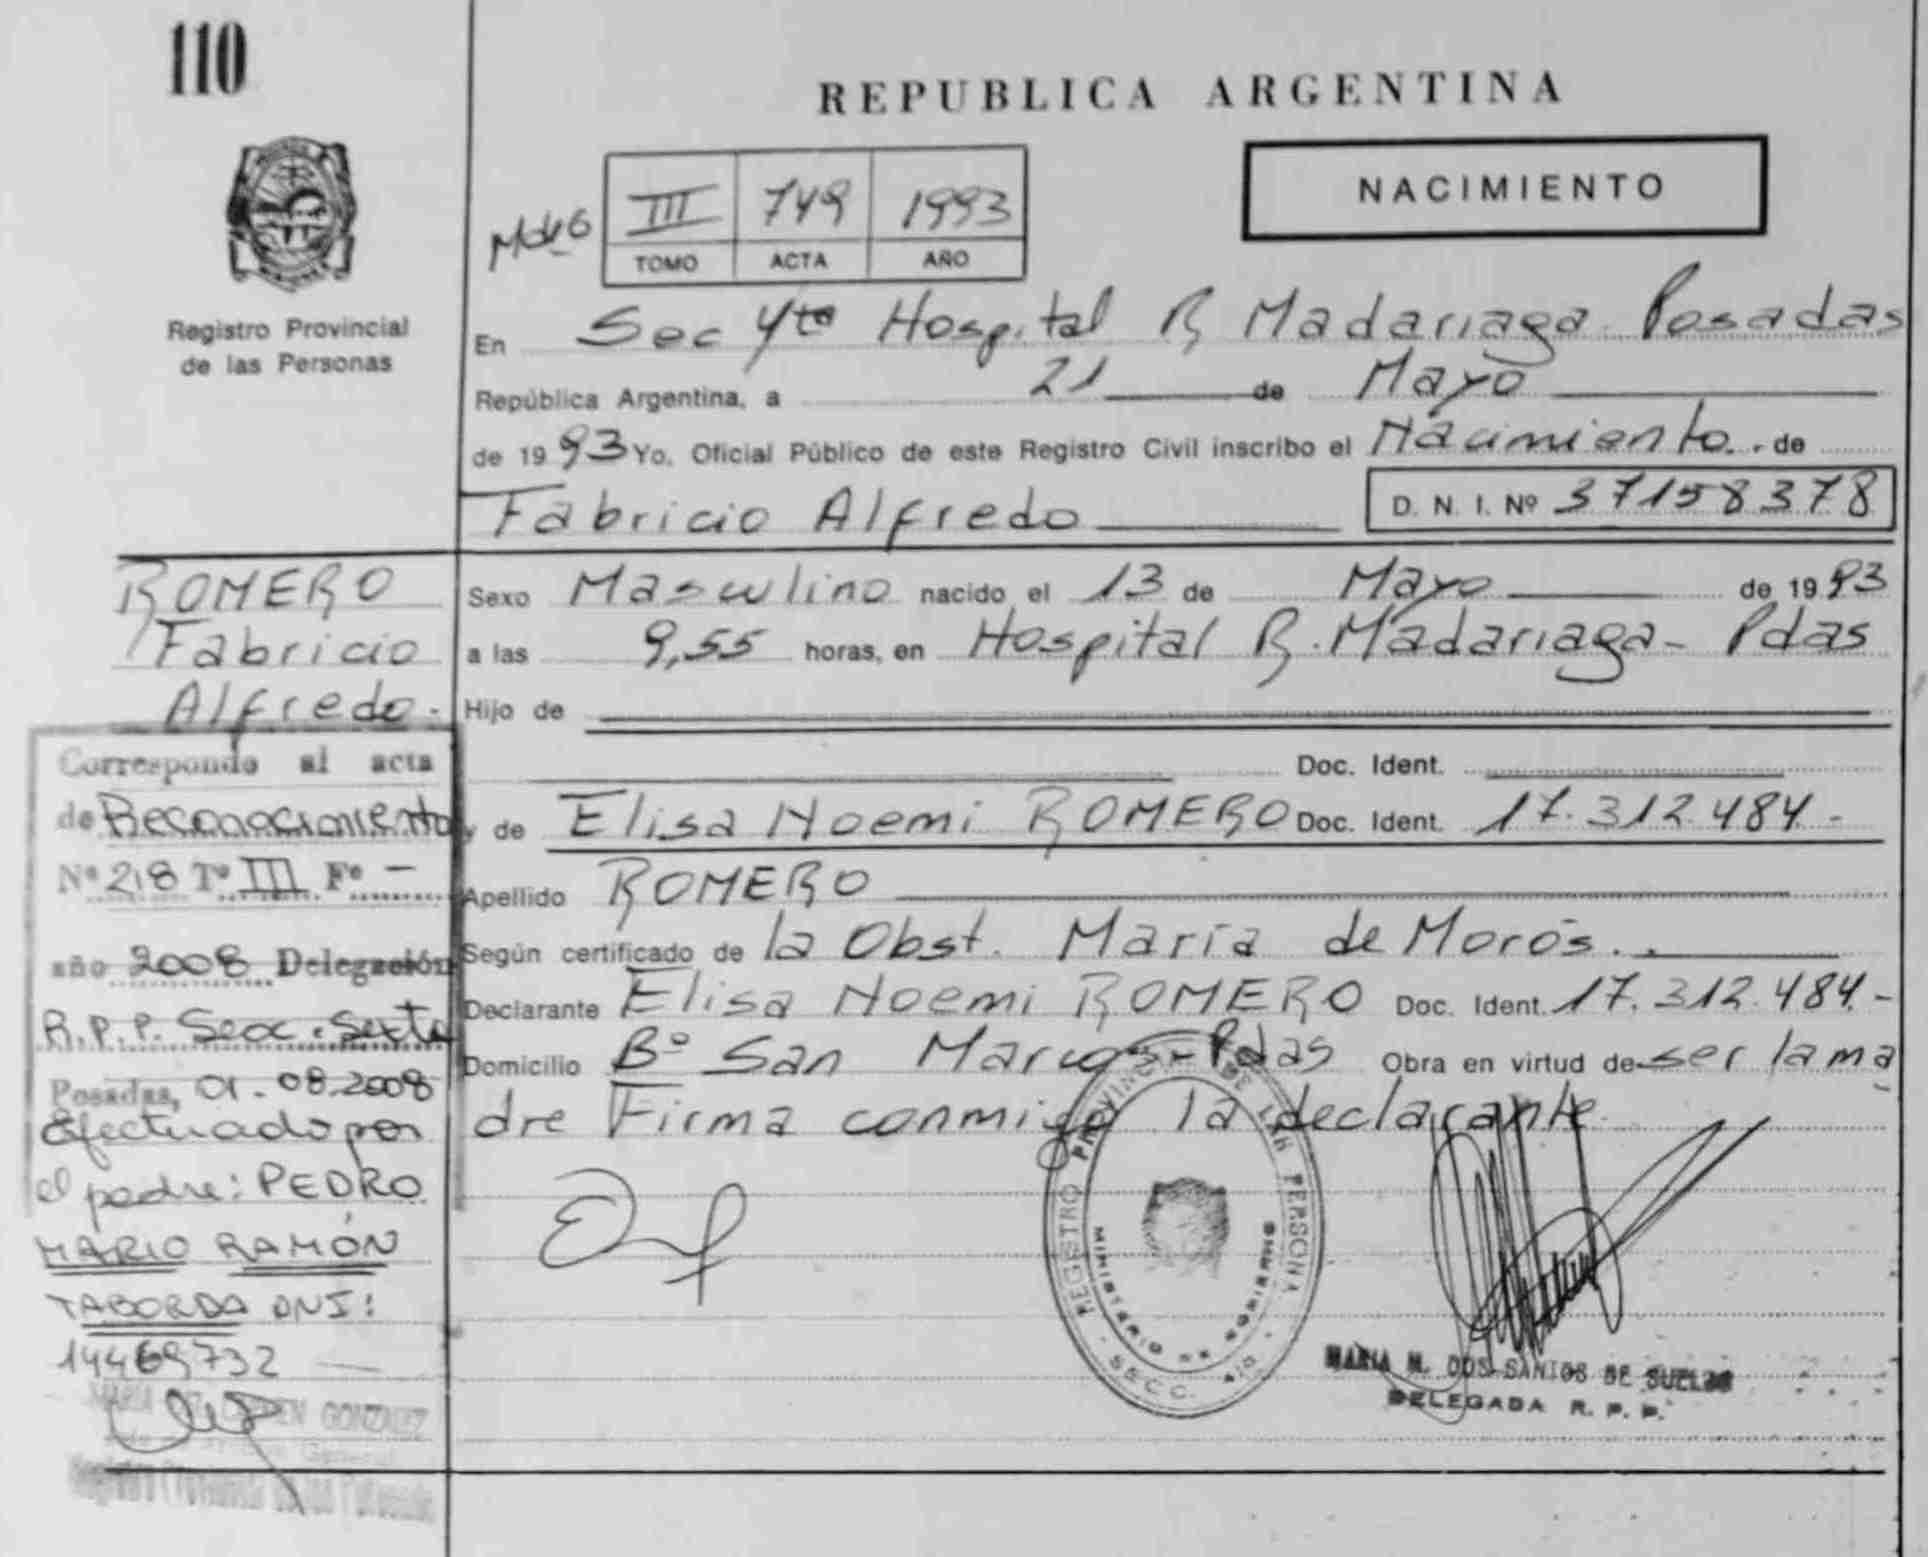 110
REPUBLICA ARGENTINA
NACIMIENTO
III 749 1993
TOMO ACTA AÑO
Registro Provincial
de las Personas
En Sec 4ta Hospital R Madariaga Posadas
República Argentina, a 21 de Mayo
de 1993 Yo, Oficial Público de este Registro Civil inscribo el Nacimiento. de
Fabricio Alfredo D. N. I. Nº 37158378
ROMERO
Fabricio
Alfredo.-
Sexo Masculino nacido el 13 de Mayo de 1993
a las 9,55 horas, en Hospital R. Madariaga- Pdas
Hijo de
Doc. Ident.
y de Elisa Noemi ROMERO Doc. Ident. 17.312.484.-
Apellido ROMERO
Según certificado de la Obst. María de Morós..
Declarante Elisa Noemi ROMERO Doc. Ident. 17.312.484.-
Domicilio Bº San Marcos - Pdas Obra en virtud de ser la ma
dre Firma conmigo la declarante.
Corresponde al acta
de Reconocimiento
Nº 218 Tº III Fº -
año 2008 Delegación
R.P.P. Secc. Sexta
Posadas, 01.08.2008
Efectuado por
el padre: PEDRO
MARIO RAMÓN
TABORDA DNI:
14469732
GONZALEZ
General
REGISTRO PROVINCIAL DE LAS PERSONAS
MINISTERIO DE GOBIERNO
SECC.
MARIA M. DOS SANTOS DE SUELDO
DELEGADA R. P. P.